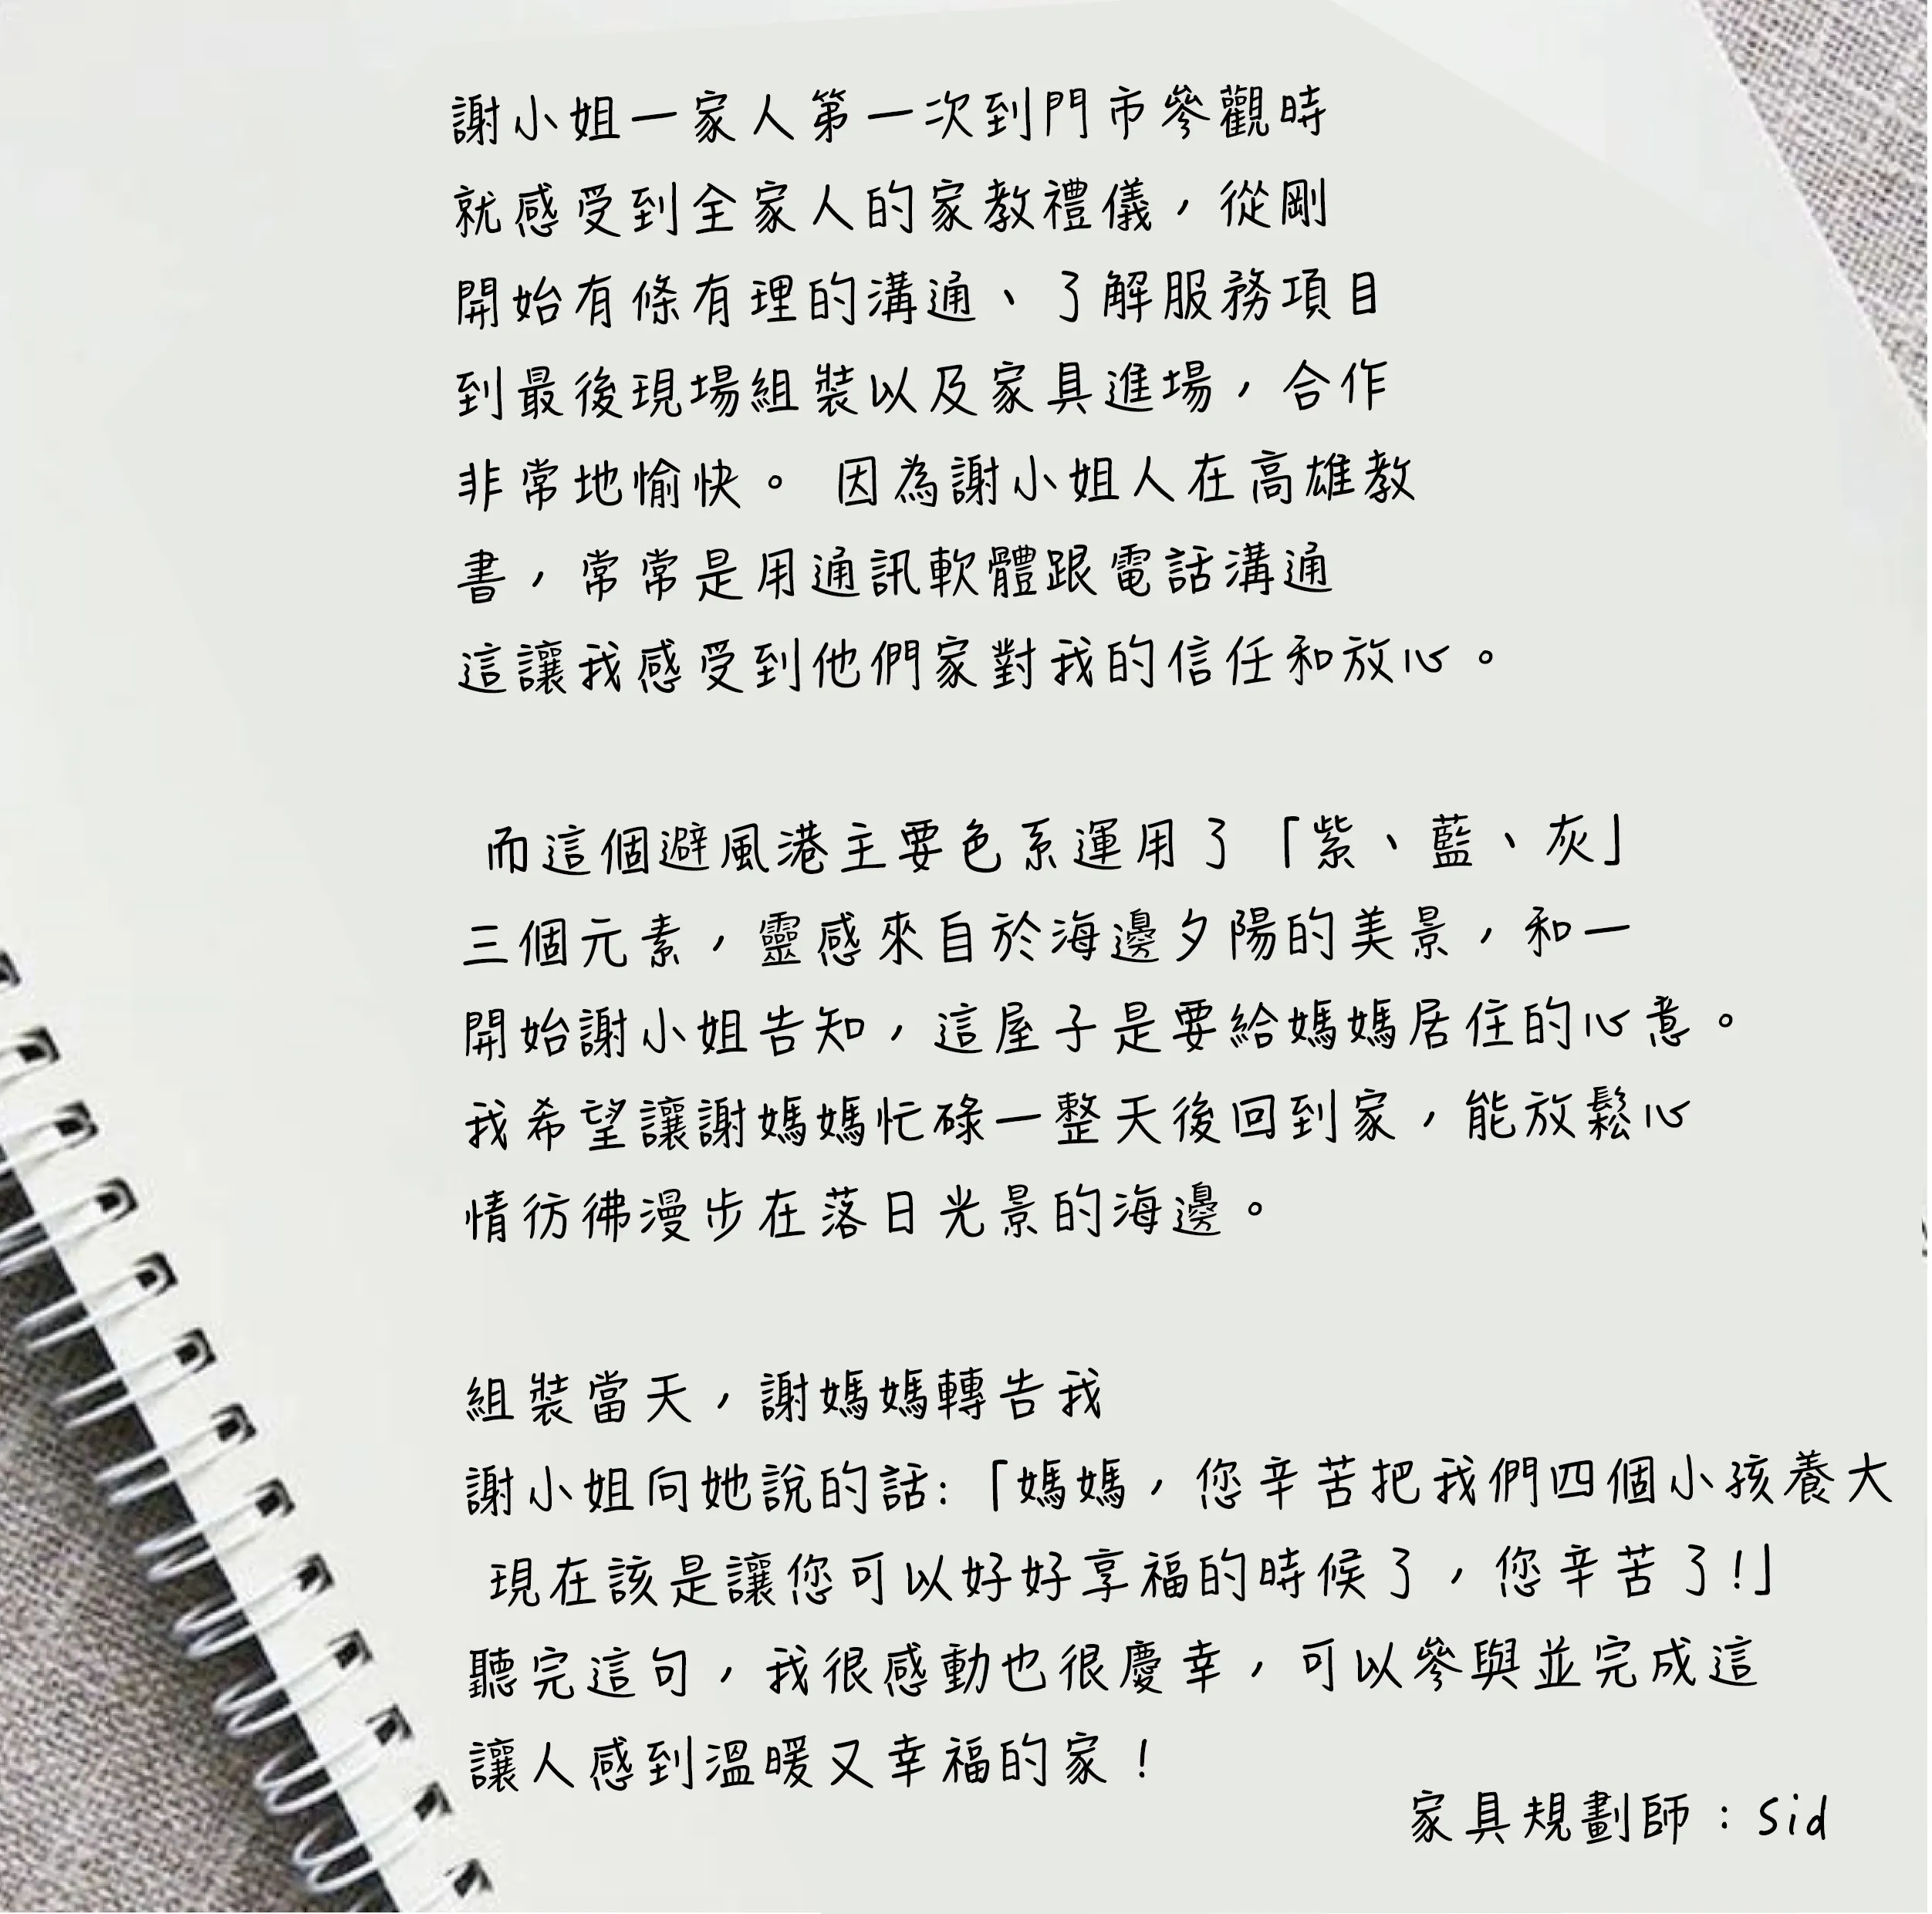 謝小姐一家人第一次到門市參觀時
就感受到全家人的家教禮儀，從剛
開始有條有理的溝通、了解服務項目
到最後現場組裝以及家具進場，合作
非常地愉快。 因為謝小姐人在高雄教
書，常常是用通訊軟體跟電話溝通
這讓我感受到他們家對我的信任和放心。
而這個避風港主要色系運用了「紫、藍、灰」
三個元素，靈感來自於海邊夕陽的美景，和一
開始謝小姐告知，這屋子是要給媽媽居住的心意。
我希望讓謝媽媽忙碌一整天後回到家，能放鬆心
情彷彿漫步在落日光景的海邊。
組裝當天，謝媽媽轉告我
謝小姐向她說的話:「媽媽，您辛苦把我們四個小孩養大
現在該是讓您可以好好享福的時候了，您辛苦了!」
聽完這句，我很感動也很慶幸，可以參與並完成這
讓人感到溫暖又幸福的家！
家具規劃師：Sid